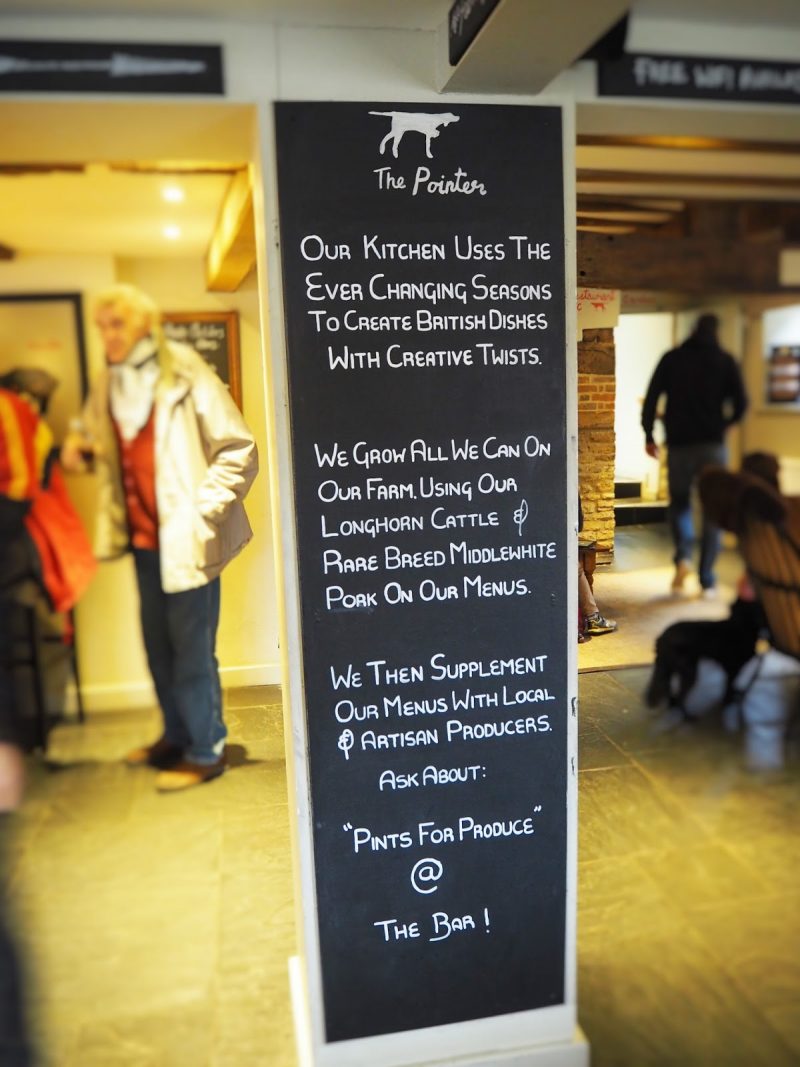 FREE WIFI
The Pointer
OUR KITCHEN USES THE
EVER CHANGING SEASONS
TO CREATE BRITISH DISHES
WITH CREATIVE TWISTS.
WE GROW ALL WE CAN ON
OUR FARM, USING OUR
LONGHORN CATTLE &
RARE BREED MIDDLEWHITE
PORK ON OUR MENUS.
WE THEN SUPPLEMENT
OUR MENUS WITH LOCAL
& ARTISAN PRODUCERS.
ASK ABOUT:
"PINTS FOR PRODUCE"
@
THE BAR!